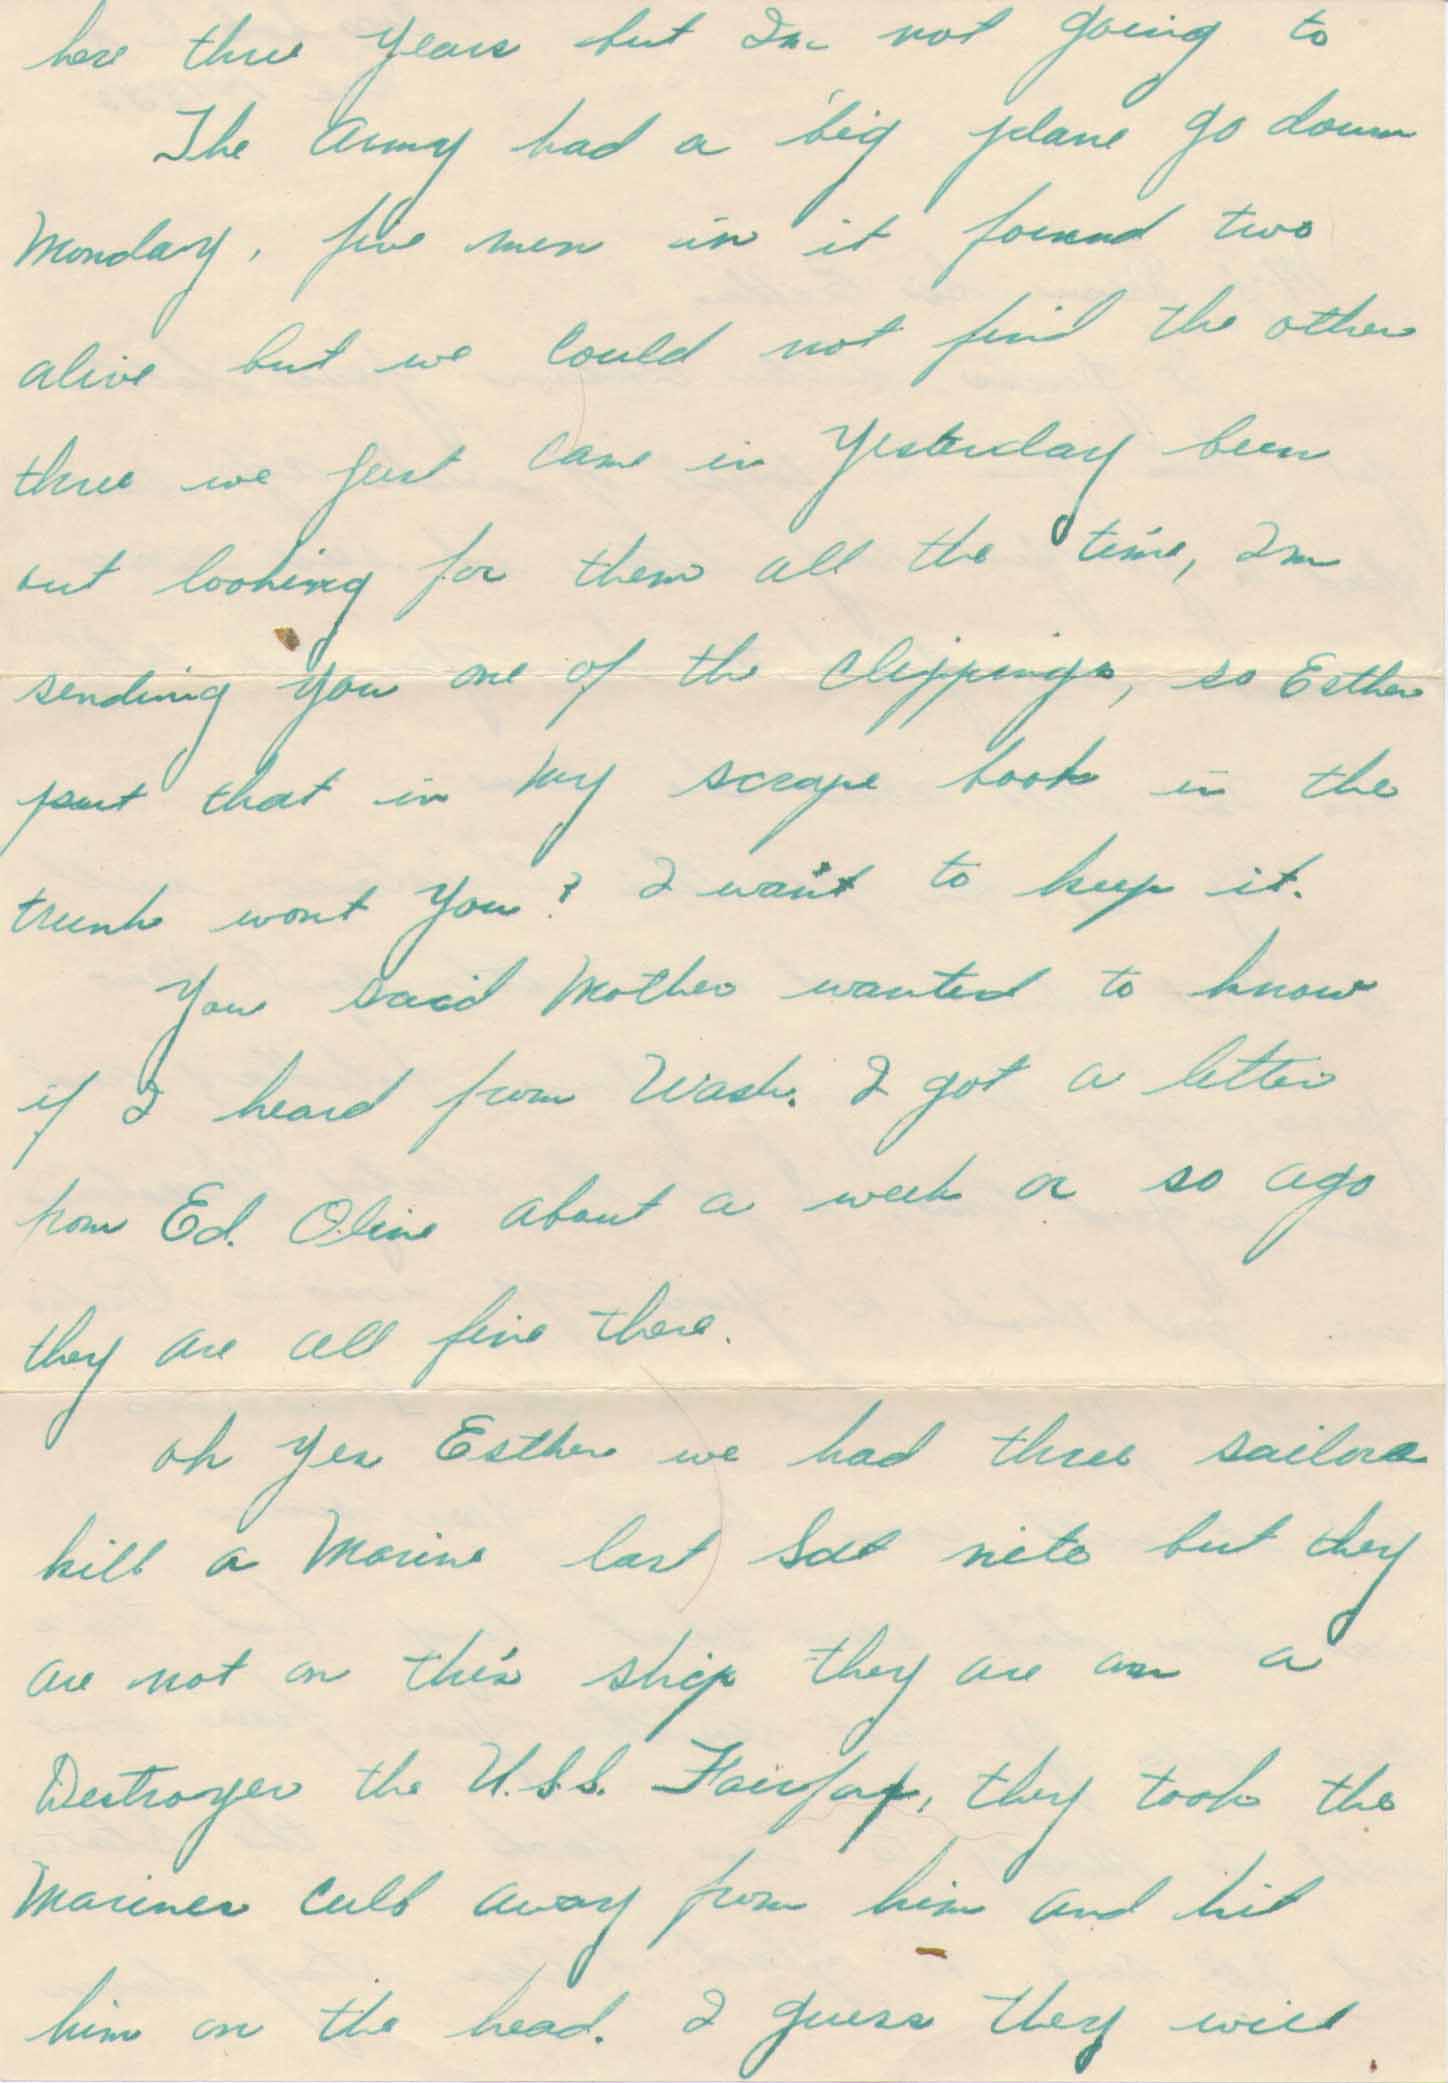 here three years but Im not going to
The Army had a big plane go down
Monday, five men in it found two
alive but we could not find the other
three we just came in Yesterday been
out looking for them all the time, Im
sending You one of the clippings, so Esther
put that in my scrape book in the
trunk wont You? I want to keep it.
You said Mother wanted to know
if I heard from Wash. I got a letter
from Ed. Oline about a week or so ago
they are all fine there.
oh Yes Esther we had three sailors
kill a Marine last Sat nite but they
are not on this ship they are on a
Destroyer the U.S.S. Fairfax, they took the
Marines culb away from him and hit
him on the head. I guess they will